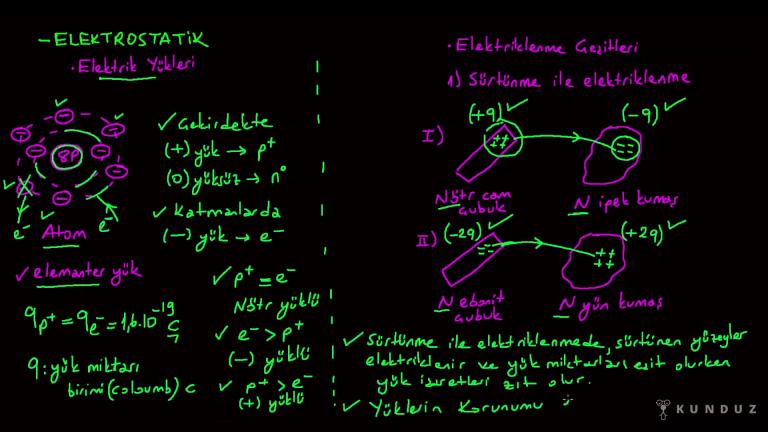 - ELEKTROSTATİK
· Elektrik Yükleri
8P
e⁻
e⁻
Atom
✓ Çekirdekte
(+) yük → p⁺
(0) yüksüz → n⁰
✓ Katmanlarda
(-) yük → e⁻
✓ elemanter yük
qp⁺ = qe⁻ = 1,6.10⁻¹⁹ C
q: yük miktarı
birimi (coloumb) C
✓ p⁺ = e⁻
Nötr yüklü
✓ e⁻ > p⁺
(-) yüklü
✓ p⁺ > e⁻
(+) yüklü
· Elektriklenme Çeşitleri
1) Sürtünme ile elektriklenme
I)
(+q) ✓
(-q) ✓
Nötr cam
çubuk
N ipek kumaş
II)
(-2q) ✓
(+2q) ✓
N ebonit
çubuk
N yün kumaş
✓ Sürtünme ile elektriklenmede, sürtünen yüzeyler
elektriklenir ve yük miktarları eşit olurken
yük işaretleri zıt olur.
✓ Yüklerin Korunumu
KUNDUZ